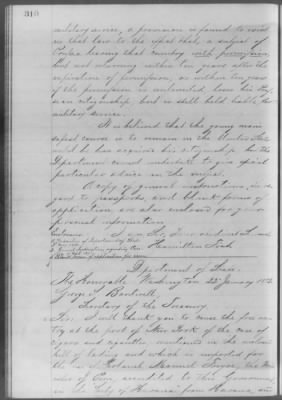 310
military service, a provision is found to exist
in that law to the effect that, a subject of
leaving that country with permission,
but not returning within ten years after the
expiration of permission, or within ten years
if the permission is unlimited, loses his
citizenship, but is still held liable for
military service.
It is believed that the young man's
safest course is to remain in the United States
until he has acquired his citizenship but the
Department cannot undertake to give special
particular advice in the
A copy of general instructions, in re-
gard to passports, and blank forms of
application are also enclosed for your
personal information.
I am, Sir, Your obedient servant
Hamilton Fish
Department of State
Washington 22 January 187
The Honorable
George S. Boutwell,
Secretary of the Treasury
Sir: I will thank you to cause the free en-
try at the port of New York of the case of
cigars and cigarettes mentioned in the enclosed
bill of lading and which is imported for
the use of Colonel Manuel Freyre, the Min-
ister of Peru, accredited to this Government,
in the City of Havana from Havana, and